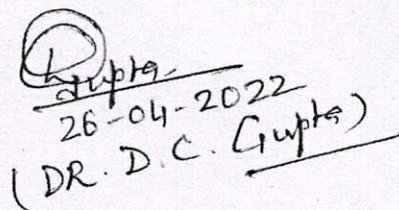 Dgupta
26-04-2022
(DR. D. C. Gupta)